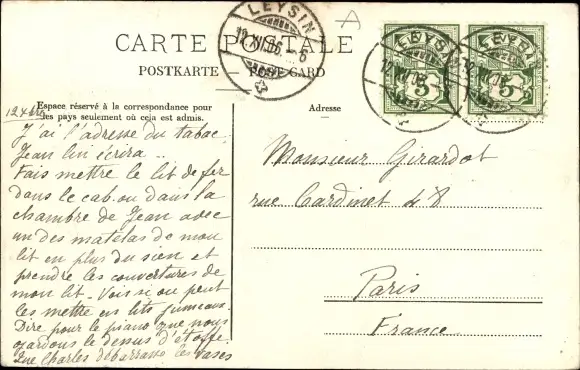 LEYSIN
12.XI.06. 6
A
CARTE POSTALE
POSTKARTE POST CARD
Espace réservé à la correspondance pour
les pays seulement où cela est admis.
Adresse
LEYSIN
12.XI.06
5
LEYSIN
12.XI.06
5
J'ai l'adresse du tabac.
Jean lui écrira..
Fais mettre le lit de fer
dans le cab. ou dans la
chambre de Jean avec
un des matelas de mon
lit en plus du sien et
prendre les couvertures de
mon lit - Vois si on peut
les mettre en lits jumeaux.
Dire pour le piano que nous
gardons le dessus d'étoffe.
Que Charles débarrasse les vases
Monsieur Girardot
rue Cardinet 48
Paris
France